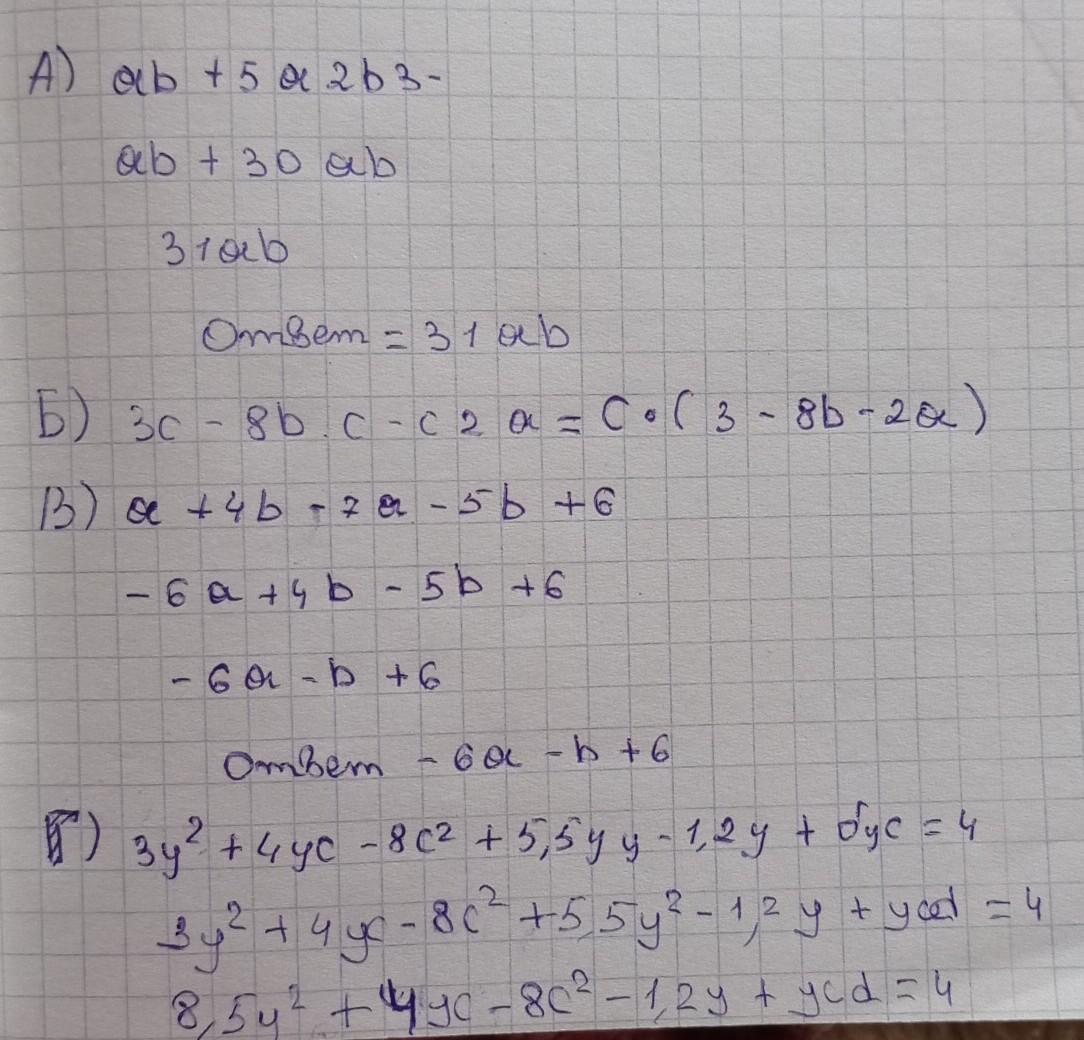 А) ab + 5 a 2b3 -
ab + 30 ab
31ab
Ответ = 31 ab
Б) 3c - 8b . c - c 2 a = c • ( 3 - 8b - 2a )
В) a + 4b - 7a - 5b + 6
- 6a + 4b - 5b + 6
- 6a - b + 6
Ответ - 6a - b + 6
Г) 3y² + 4yc - 8c² + 5,5y y - 1,2y + дyc = 4
3y² + 4yc - 8c² + 5,5y² - 1,2y + ycd = 4
8,5y² + 4yc - 8c² - 1,2y + ycd = 4